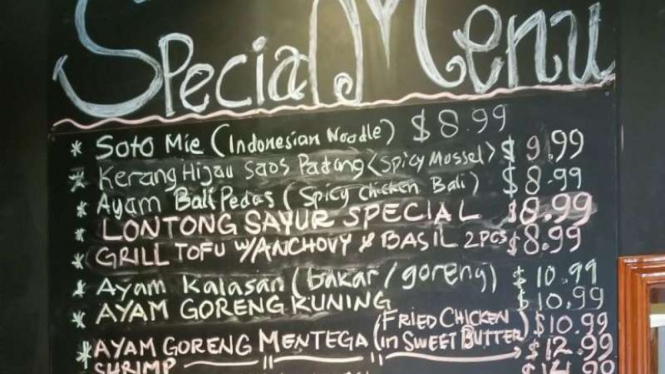 Special Menu
* Soto Mie (Indonesian Noodle) $8.99
* Kerang Hijau Saos Padang <Spicy Mossel> $9.99
* Ayam Bali Pedas (Spicy Chicken Bali) $8.99
* LONTONG SAYUR SPECIAL $8.99
* GRILL TOFU W/ANCHOVY & BASIL 2PCS $8.99
* Ayam Kalasan (bakar/goreng) $10.99
* AYAM GORENG KUNING $10.99
* AYAM GORENG MENTEGA (FRIED CHICKEN in SWEET BUTTER) $10.99
SHRIMP $12.99
$14.99